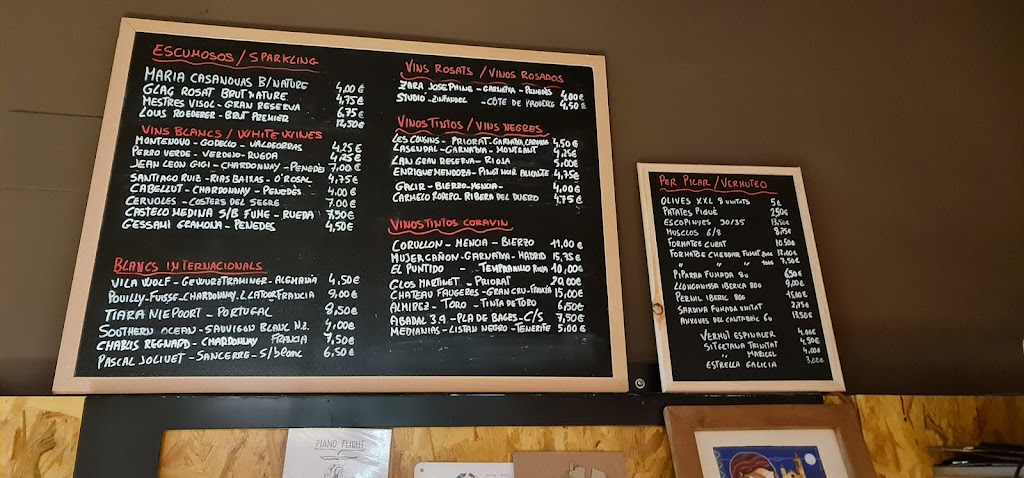 ESCUMOSOS / SPARKLING
MARIA CASANOVAS B/NATURE 4,00 €
GLAG ROSAT BRUT NATURE 4,75 €
MESTRES VISOL - GRAN RESERVA 6.75 €
LOUIS ROEDERER - BRUT PREMIER 12,50 €
VINS BLANCS / WHITE WINES
MONTENOVO - GODELLO - VALDEORRAS 4,25 €
PERRO VERDE - VERDEJO - RUEDA 4,25 €
JEAN LEON GIGI - CHARDONNAY - PENEDÈS 7,00 €
SANTIAGO RUIZ - RIAS BAIXAS - O'ROSAL 4,75 €
CABELLUT - CHARDONNAY - PENEDÈS 4.00 €
CERVOLES - COSTERS DEL SEGRE 7.00 €
CASTELO MEDINA S/B FUME - RUEDA 7,50 €
GESSAMI GRAMONA - PENEDES 4,50 €
BLANCS INTERNACIONALS
VILA WOLF - GEWURZTRAMINER - ALEMANIA 4,50 €
POUILLY-FUISSE - CHARDONNAY. L LATOUR FRANCIA 9,00 €
TIARA NIEPOORT - PORTUGAL 8,50 €
SOUTHERN OCEAN - SAUVIGON BLANC N.Z. 4,00 €
CHABLIS REGNARD - CHARDONNAY FRANCIA 7,50 €
PASCAL JOLIVET - SANCERRE - S/BLANC 6,50 €
VINS ROSATS / VINOS ROSADOS
ZARA JOSEPHINE - GARNATXA - PENEDÈS 4,00 €
STUDIO - ZINFANDEL - CÔTE DE PROVENCE 4,50 €
VINOS TINTOS / VINS NEGRES
LES COUSINS - PRIORAT - GARNATXA CARIÑENA 4,50 €
LASENDAL - GARNATXA - MONTSANT 4,25 €
LAN GRAU RESERVA - RIOJA 5,00 €
ENRIQUE MENDOZA - PINOT NOIR ALICANTE 4,75 €
GACIR - BIERZO - MENCIA - 4,00 €
CARMELO RODERO RIBERA DEL DUERO 4,75 €
VINOS TINTOS CORAVIN
CORULLON - MENCIA - BIERZO 11,00 €
MUJER CAÑON - GARNATXA - MADRID 15,75 €
EL PUNTIDO - TEMPRANILLO RIOJA 10,00 €
CLOS MARTINET - PRIORAT 20,00 €
CHATEAU FAUGERES - GRAN CRU - FRANCIA 15,00 €
ALMIREZ - TORO - TINTA DE TORO 6,50 €
ABADAL 3.9 - PLA DE BAGES - C/S 7,50 €
MEDIANIAS - LISTAN NEGRO - TENERIFE 5,00 €
PER PICAR / VERMUTEO
OLIVES XXL 8 UNITATS 5 €
PATATES PIQUÉ 2,50 €
ESCOPINYES 30/35 13,50 €
MUSCLOS 6/8 8,75 €
FORMATGE CURAT 10,50 €
FORMATGE CHEDDAR FUMAT 12,00 €
" " 7,50 €
PIPARRA FUMADA 8u 6,50 €
LLONGANISSA IBERICA 80G 9,00 €
PERNIL IBERIC 80G 15,00 €
SARDINA FUMADA UNITAT 2,75 €
ANXOVES DEL CANTABRIC 6u 13,50 €
VERMUT ESPINALER 4,00 €
SITGETANA TRINITAT 4,50 €
" MARICEL 4,00 €
ESTRELLA GALICIA 3,00 €
PIANO FLIGHT